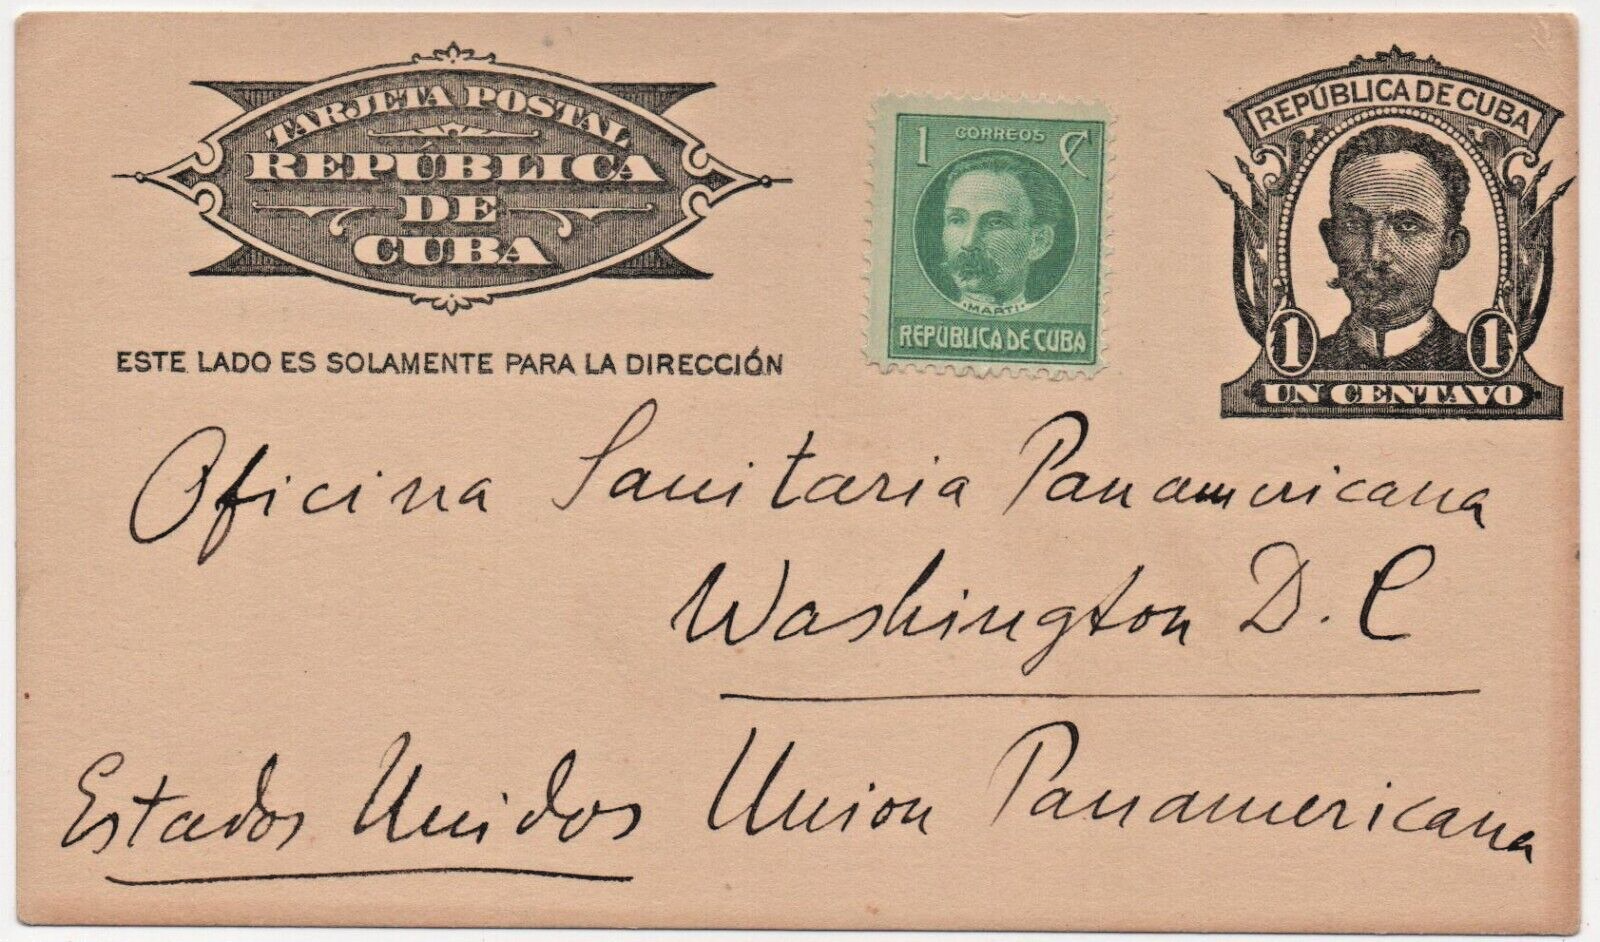 TARJETA POSTAL
REPÚBLICA
DE
CUBA
ESTE LADO ES SOLAMENTE PARA LA DIRECCIÓN
1 CORREOS C
MARTI
REPÚBLICA DE CUBA
REPÚBLICA DE CUBA
1 1
UN CENTAVO
Oficina Sanitaria Panamericana
Washington D. C
Estados Unidos Union Panamericana